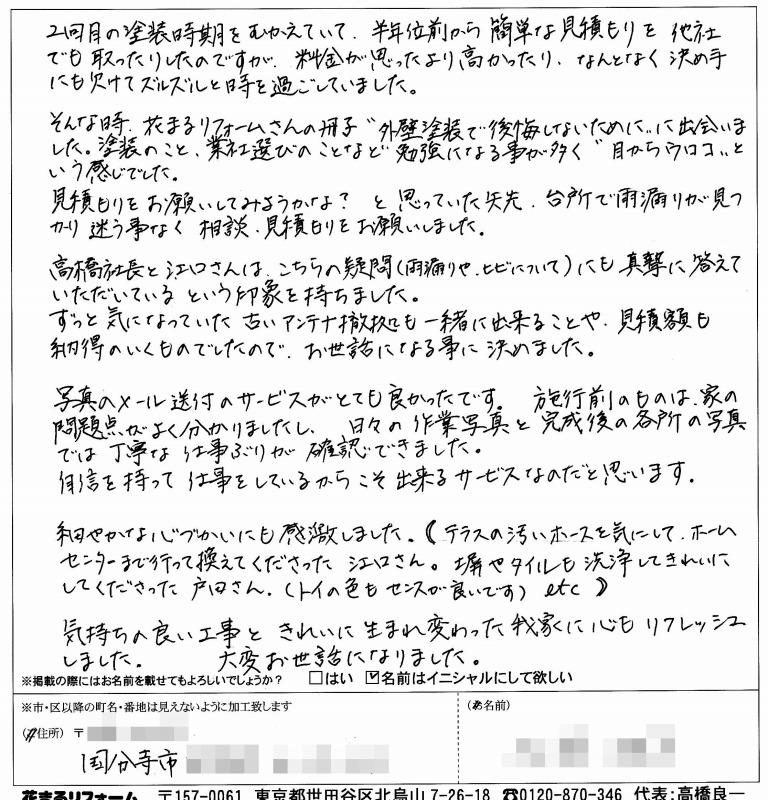 2回目の塗装時期をむかえていて、半年位前から簡単な見積もりを他社
でも取ったりしたのですが、料金が思ったより高かったり、なんとなく決め手
にも欠けてズルズルと時を過ごしていました。
そんな時、花まるリフォームさんの冊子〝外壁塗装で後悔しないために〟に出会いま
した。塗装のこと、業社選びのことなど勉強になる事が多く〝目からウロコ〟と
いう感じでした。
見積もりをお願いしてみようかな？と思っていた矢先、台所で雨漏りが見つ
かり迷う事なく相談、見積もりをお願いしました。
高橋社長と江口さんは、こちらの疑問(雨漏りや、ヒビについて)にも真摯に答えて
いただいているという印象を持ちました。
ずっと気になっていた古いアンテナ撤去も一緒に出来ることや、見積額も
納得のいくものでしたので、お世話になる事に決めました。
写真のメール送付のサービスがとても良かったです。施行前のものは、家の
問題点がよく分かりましたし、日々の作業写真と完成後の各所の写真
では丁寧な仕事ぶりが確認できました。
自信を持って仕事をしているからこそ出来るサービスなのだと思います。
細やかな心づかいにも感激しました。(テラスの汚いホースを気にして、ホーム
センターまで行って換えてくださった江口さん。塀やタイルも洗浄してきれいに
してくださった戸田さん。(トイの色もセンスが良いです) etc )
気持ちの良い工事ときれいに生まれ変わった我家に心もリフレッシュ
しました。 大変お世話になりました。
※掲載の際にはお名前を載せてもよろしいでしょうか？ □はい ☑名前はイニシャルにして欲しい
※市・区以降の町名・番地は見えないように加工致します
(ご住所) 〒
国分寺市
(お名前)
花まるリフォーム 〒157-0061 東京都世田谷区北烏山7-26-18 ☎0120-870-346 代表：高橋良一